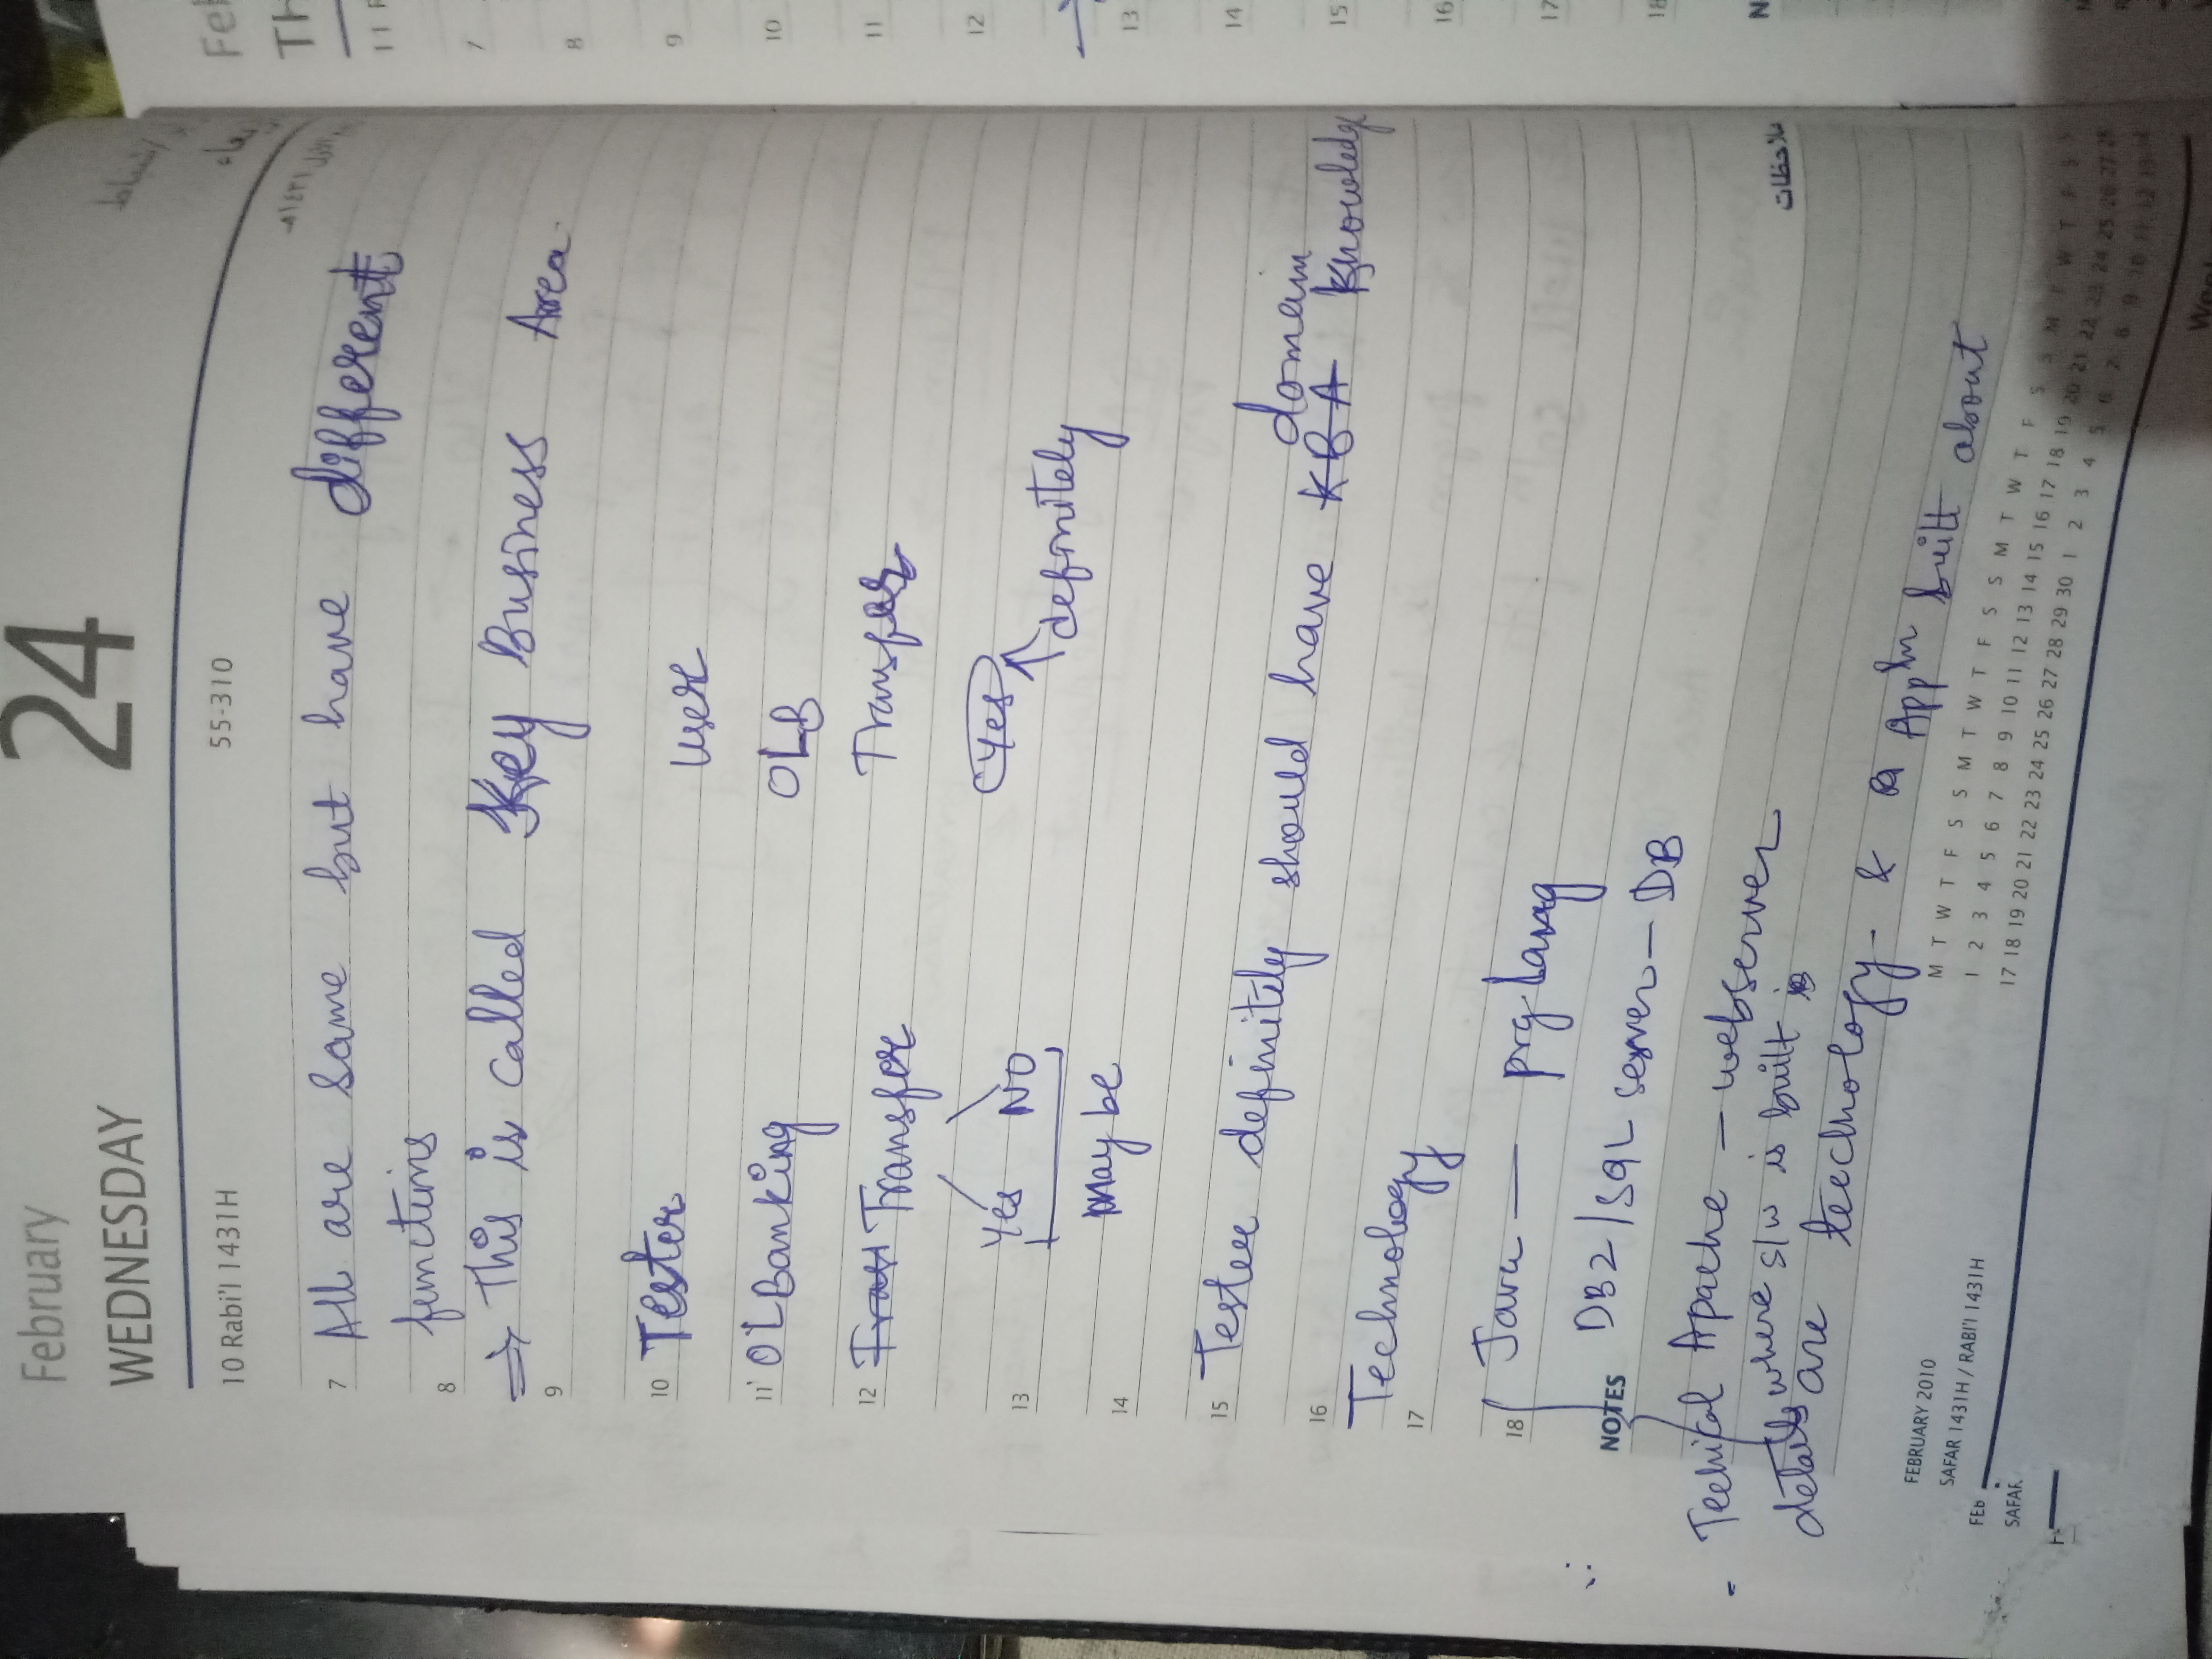 February
WEDNESDAY 24
10 Rabi'l 1431H 55-310
7 All are same but have different
8 functions
⇒ This is called Key Business Area.
9
10 Tester User
11 OLBanking OLB
12 Transfer Transfer
13 Yes NO Yes ↑ definitely
14 may be
domain
15 Tester definitely should have KBA Knowledge
16
Technology
17
18 Java — prg lang
NOTES DB2/SQL server — DB ملاحظات
Apache — webserver
details where s/w is built is
are technology - & a App'n built about
FEBRUARY 2010
SAFAR 1431H / RABI'I 1431H
M T W T F S S M T W T F S S M T W T F S S M T W T F S S
1 2 3 4 5 6 7 8 9 10 11 12 13 14 15 16 17 18 19 20 21 22 23 24 25 26 27 28
17 18 19 20 21 22 23 24 25 26 27 28 29 30 1 2 3 4 5 6 7 8 9 10 11 12 13 14
Feb
Th
11
7
8
9
10
11
12
13
14
15
16
17
18
N